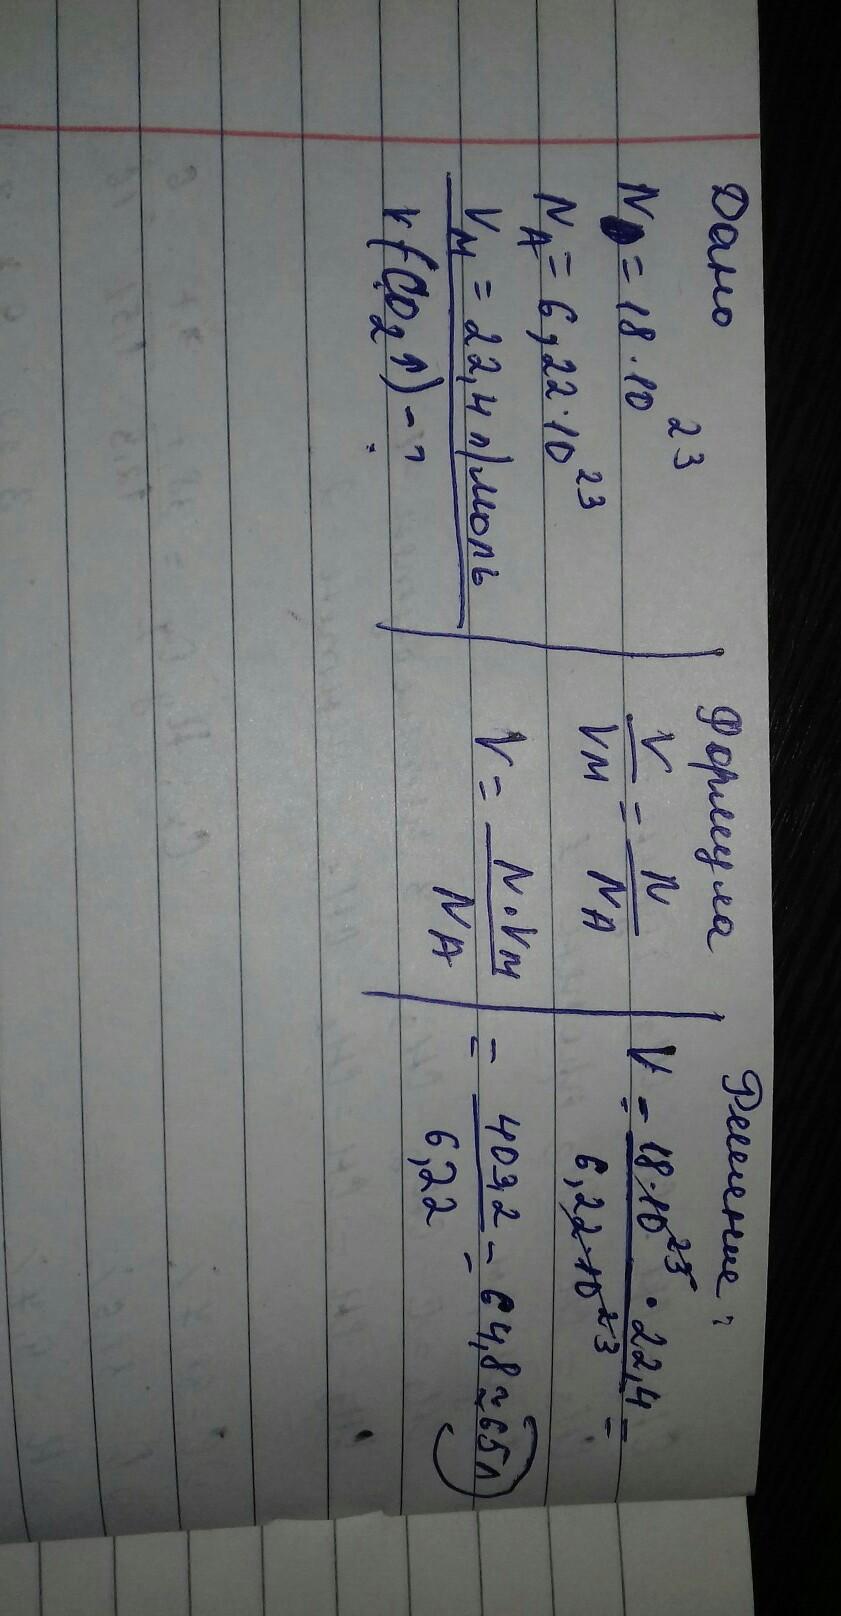 Дано
N = 18·10²³
N_A = 6,22·10²³
V_M = 22,4 л/моль
V (CO₂ г) - ?
Формула
V/V_M = N/N_A
V = N·V_M/N_A
Решение:
V = 18·10²³·22,4/6,22·10²³ =
= 403,2/6,22 = 64,8 ≈ 65 л